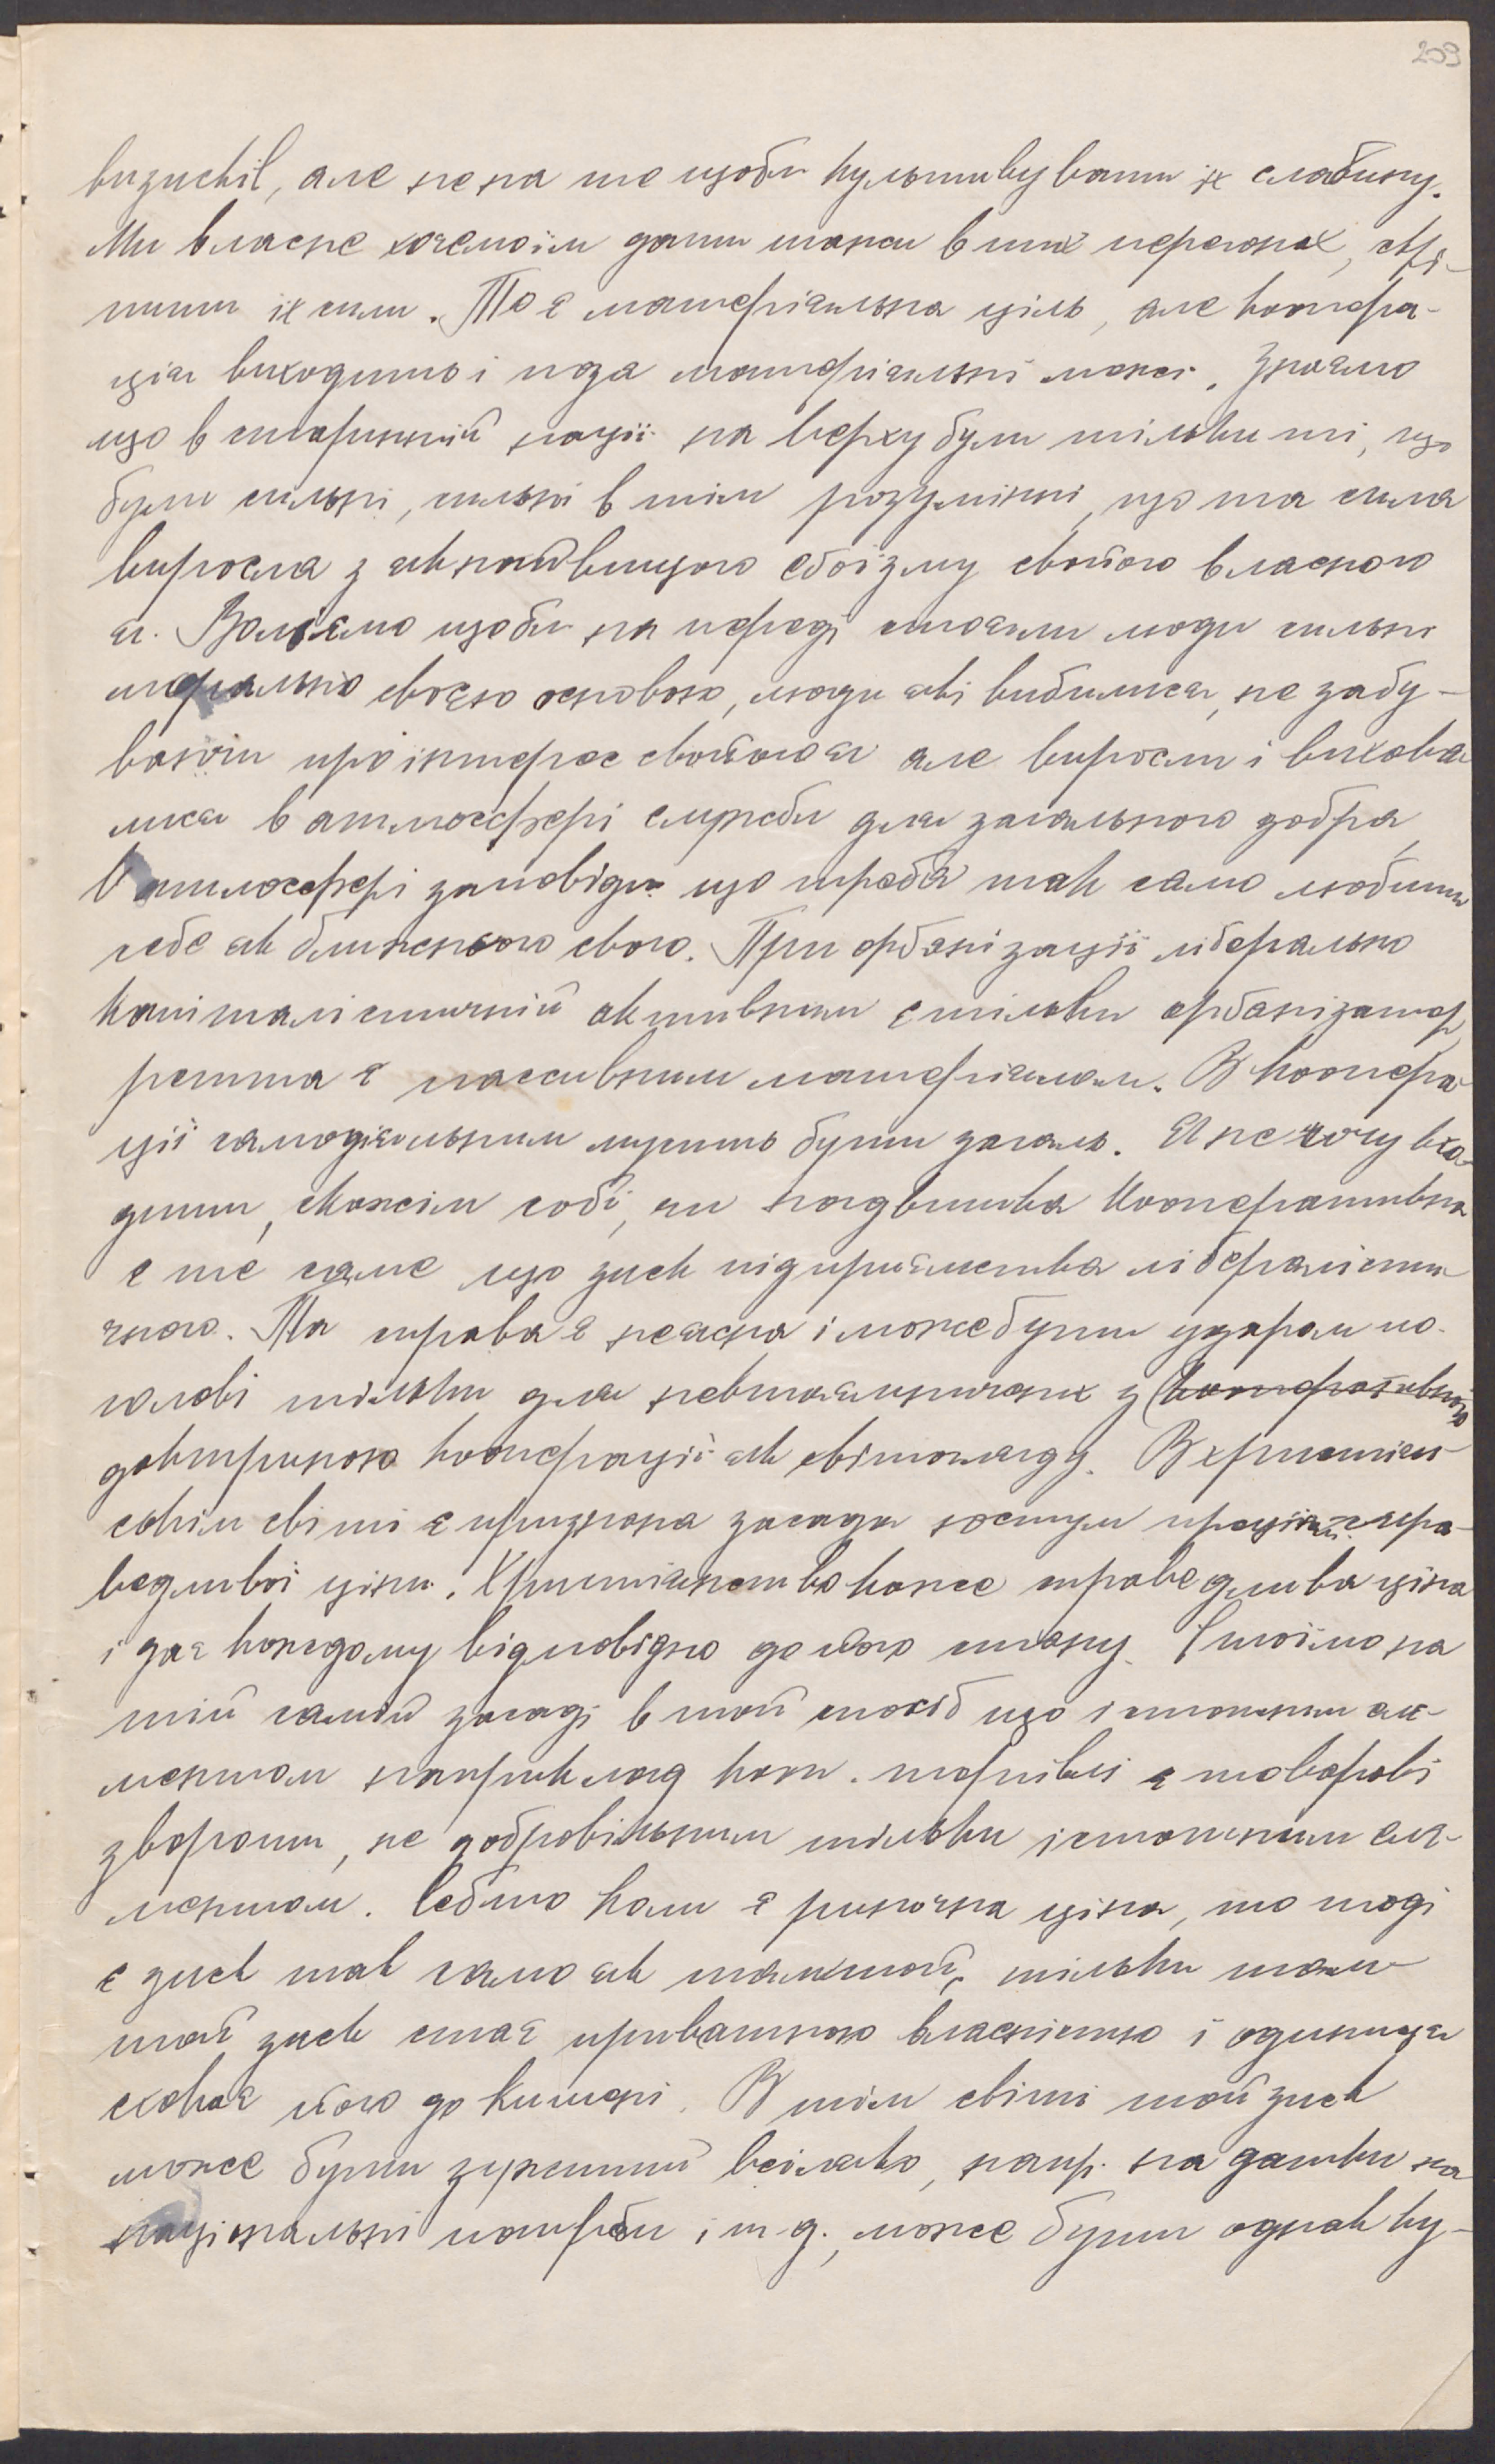 209
визискіл, але не на те щоби культивувати їх слабину.
Ми власне хочемо їм дати шанси в тих перегонах, скрі-
пити їх сили. То є матеріяльна ціль, але коопера-
ція виходить і поза матеріяльні межі. Знаємо
що в старинній нації на верху були тільки ті, що
були сильні, сильні в тім розумінні, що та сила
виросла з як найвищого еґоїзму свойого власного
я. Волімо щоби на переді стояли люди сильні
морально своєю основою, люди які вибилися, не забу-
ваючи про інтерес свойого я але виросли і вихова
лися в атмосфері служби для загального добра,
В атмосфері заповіди що треба так само любити
себе як ближнього свого. При орґанізації ліберально
капіталістичній активним є тільки орґанізатор,
решта є пассивним матеріялом. В коопера-
ції самодіяльним мусить бути загал. Я не хочу вхо-
дити, скажім собі, чи надвишка кооперативна
є те саме що зиск підприємства лібералісти-
чного. Та справа є неясна і може бути ударом по
голові тільки для невтаємничених з (кооперативною
доктриною кооперації як світогляду. В християн-
скім світі є признана засада юстум преціюм справ-
ведливої ціни. Християнство каже справедлива ціна
і дає кождому відповідно до його стану. Стоїмо на
тій самій засаді в той спосіб що істотним еле-
ментом наприклад кооп. торгівлі є товарові
звороти, не добровільним тільки істотним еле-
ментом. Себто коли є ринкова ціна, то тоді
є зиск так само як там той, тільки там
той зиск стає приватною власністю і одиниця
сховає його до кишені. В тім світі той зиск
може бути зужитий всіляко, напр. на датки на
національні потреби і т. д., може бути однак ку-